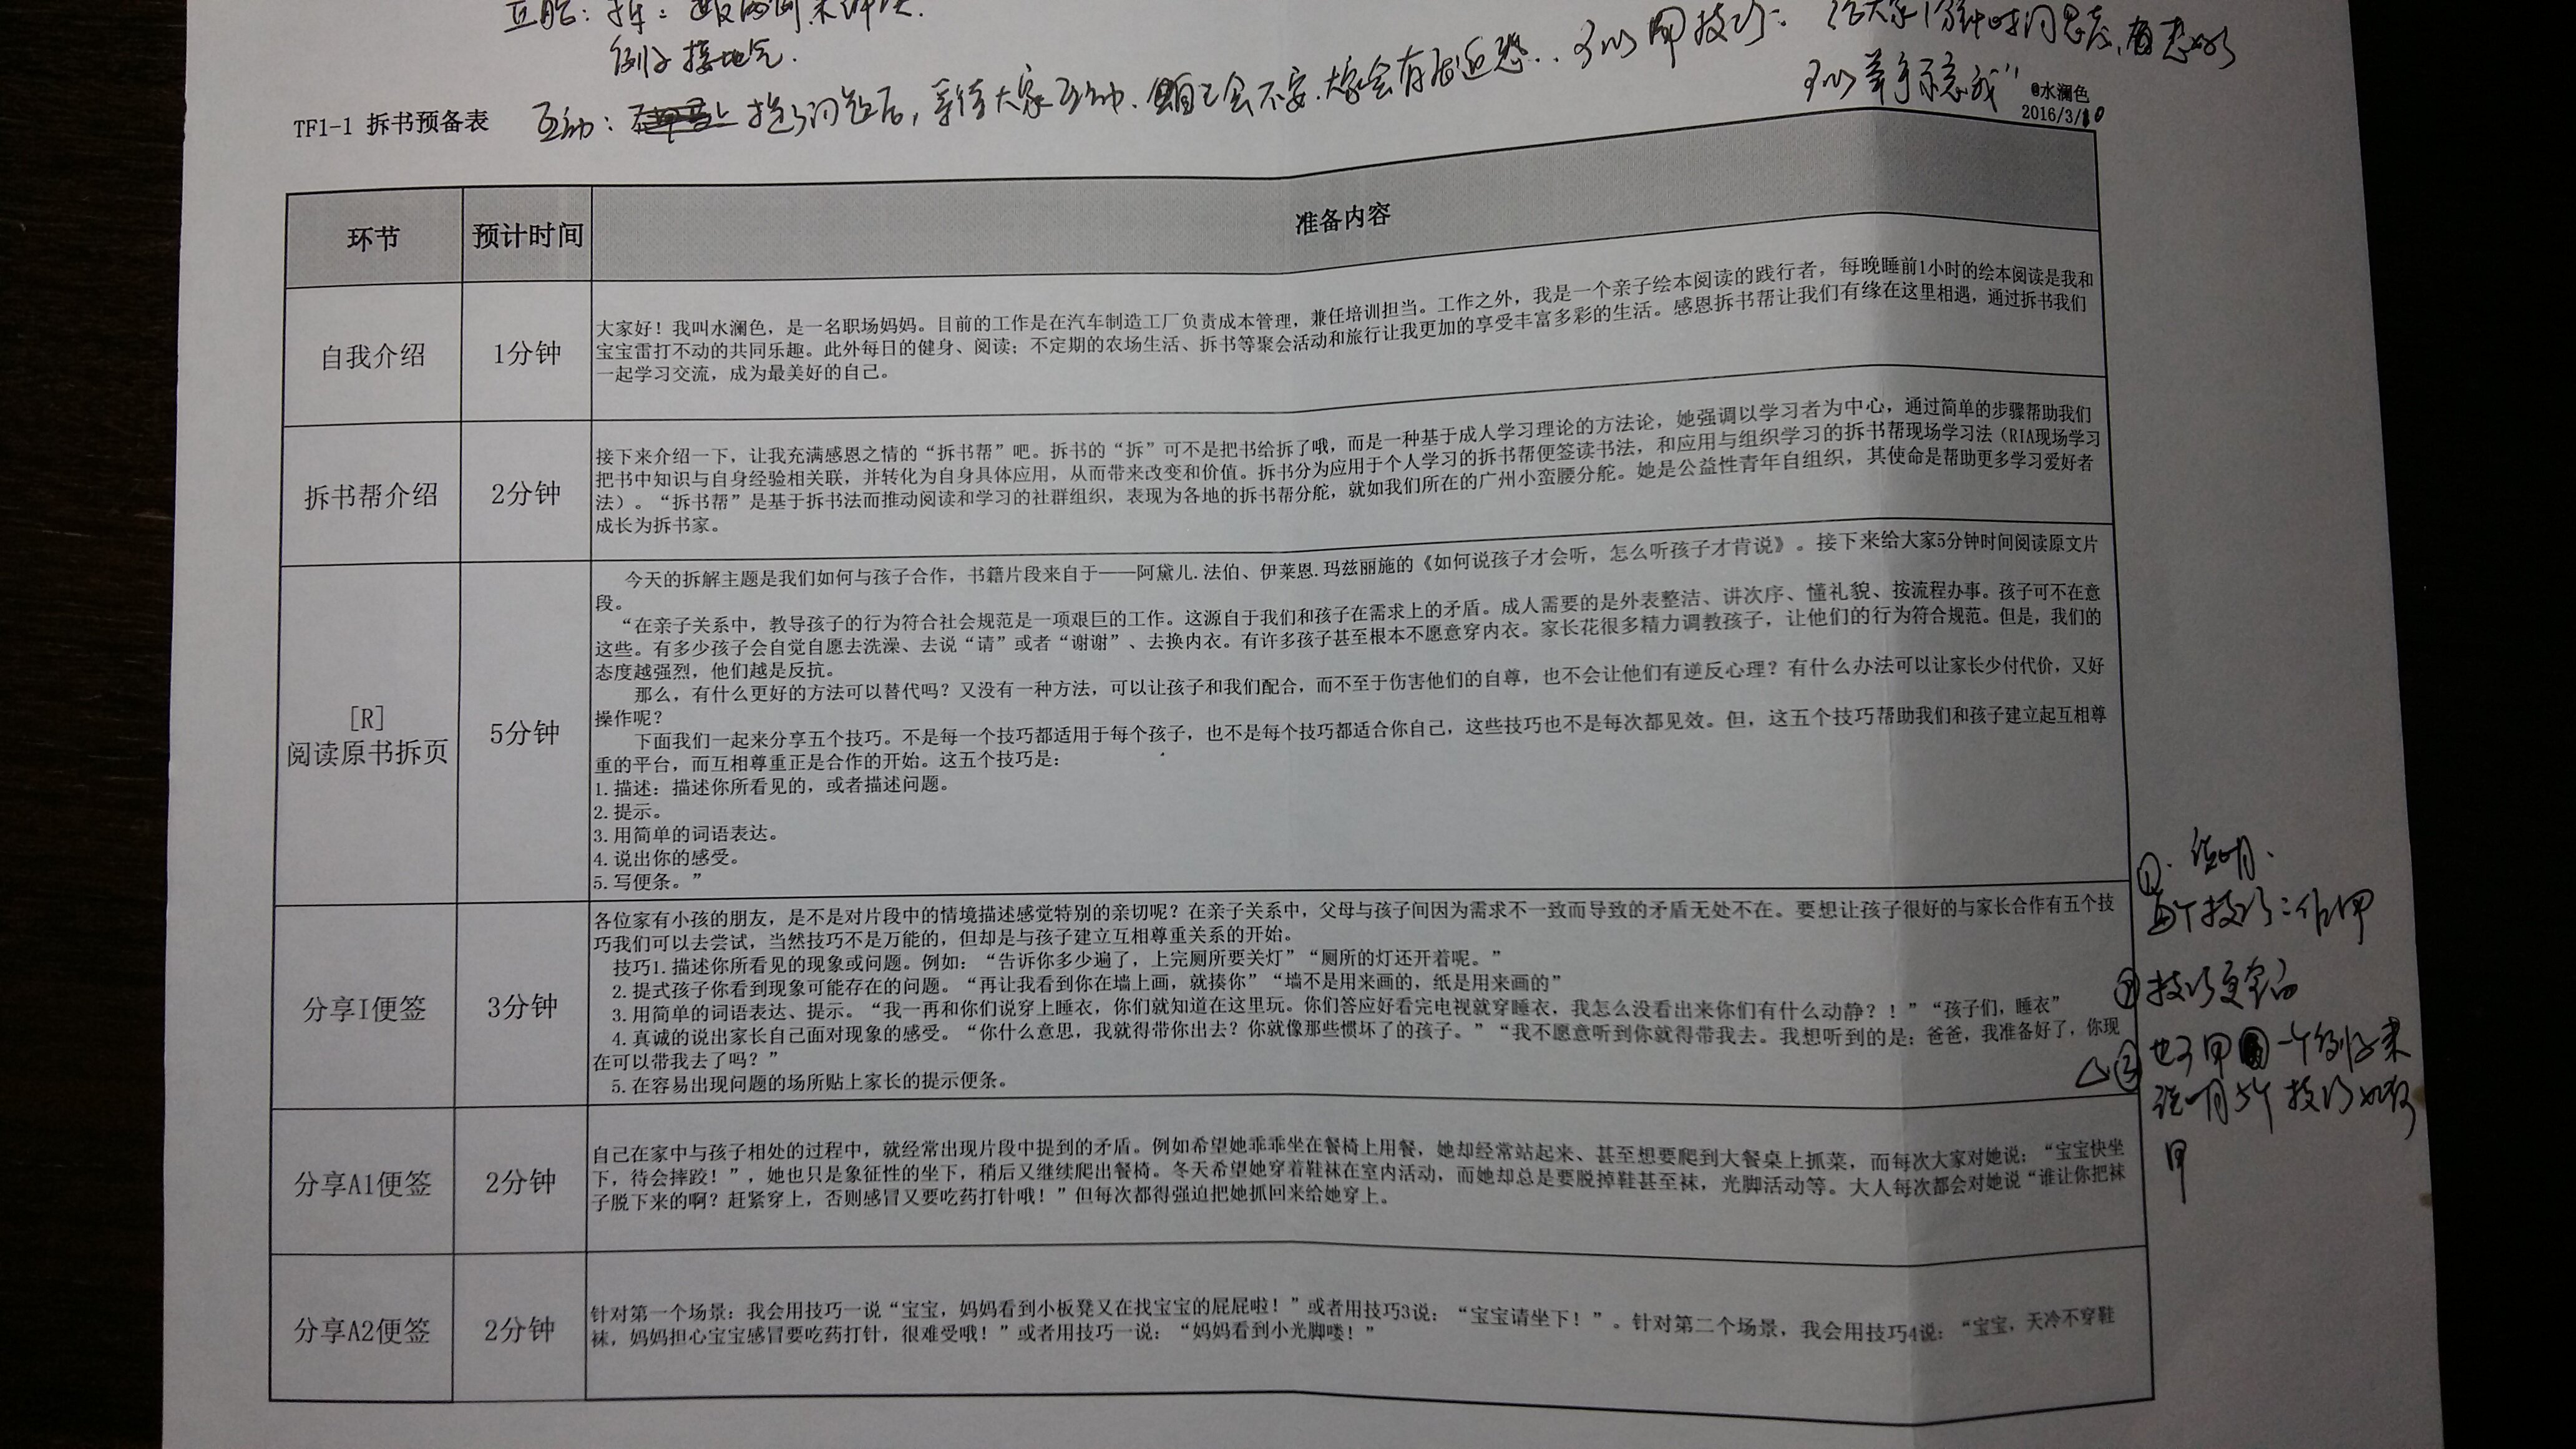 例子接地气.
互动: 提了问题后, 等待大家互动. 自己会不安. 大家会有压迫感.. 可以用技巧: 给大家1分钟时间思考, 有想好
可以举手示意我"
TF1-1 拆书预备表
@水澜色
2016/3/10
环节 预计时间 准备内容
自我介绍 1分钟
大家好！我叫水澜色，是一名职场妈妈。目前的工作是在汽车制造工厂负责成本管理，兼任培训担当。工作之外，我是一个亲子绘本阅读的践行者，每晚睡前1小时的绘本阅读是我和
宝宝雷打不动的共同乐趣。此外每日的健身、阅读；不定期的农场生活、拆书等聚会活动和旅行让我更加的享受丰富多彩的生活。感恩拆书帮让我们有缘在这里相遇，通过拆书我们
一起学习交流，成为最美好的自己。
拆书帮介绍 2分钟
接下来介绍一下，让我充满感恩之情的“拆书帮”吧。拆书的“拆”可不是把书给拆了哦，而是一种基于成人学习理论的方法论，她强调以学习者为中心，通过简单的步骤帮助我们
把书中知识与自身经验相关联，并转化为自身具体应用，从而带来改变和价值。拆书分为应用于个人学习的拆书帮便签读书法，和应用与组织学习的拆书帮现场学习法（RIA现场学习
法）。“拆书帮”是基于拆书法而推动阅读和学习的社群组织，表现为各地的拆书帮分舵，就如我们所在的广州小蛮腰分舵。她是公益性青年自组织，其使命是帮助更多学习爱好者
成长为拆书家。
[R]
阅读原书拆页 5分钟
今天的拆解主题是我们如何与孩子合作，书籍片段来自于——阿黛儿.法伯、伊莱恩.玛兹丽施的《如何说孩子才会听，怎么听孩子才肯说》。接下来给大家5分钟时间阅读原文片
段。
“在亲子关系中，教导孩子的行为符合社会规范是一项艰巨的工作。这源自于我们和孩子在需求上的矛盾。成人需要的是外表整洁、讲次序、懂礼貌、按流程办事。孩子可不在意
这些。有多少孩子会自觉自愿去洗澡、去说“请”或者“谢谢”、去换内衣。有许多孩子甚至根本不愿意穿内衣。家长花很多精力调教孩子，让他们的行为符合规范。但是，我们的
态度越强烈，他们越是反抗。
那么，有什么更好的方法可以替代吗？又没有一种方法，可以让孩子和我们配合，而不至于伤害他们的自尊，也不会让他们有逆反心理？有什么办法可以让家长少付代价，又好
操作呢？
下面我们一起来分享五个技巧。不是每一个技巧都适用于每个孩子，也不是每个技巧都适合你自己，这些技巧也不是每次都见效。但，这五个技巧帮助我们和孩子建立起互相尊
重的平台，而互相尊重正是合作的开始。这五个技巧是：
1.描述：描述你所看见的，或者描述问题。
2.提示。
3.用简单的词语表达。
4.说出你的感受。
5.写便条。”
分享I便签 3分钟
各位家有小孩的朋友，是不是对片段中的情境描述感觉特别的亲切呢？在亲子关系中，父母与孩子间因为需求不一致而导致的矛盾无处不在。要想让孩子很好的与家长合作有五个技
巧我们可以去尝试，当然技巧不是万能的，但却是与孩子建立互相尊重关系的开始。
技巧1.描述你所看见的现象或问题。例如：“告诉你多少遍了，上完厕所要关灯”“厕所的灯还开着呢。”
2.提式孩子你看到现象可能存在的问题。“再让我看到你在墙上画，就揍你”“墙不是用来画的，纸是用来画的”
3.用简单的词语表达、提示。“我一再和你们说穿上睡衣，你们就知道在这里玩。你们答应好看完电视就穿睡衣，我怎么没看出来你们有什么动静？！”“孩子们，睡衣”
4.真诚的说出家长自己面对现象的感受。“你什么意思，我就得带你出去？你就像那些惯坏了的孩子。”“我不愿意听到你就得带我去。我想听到的是：爸爸，我准备好了，你现
在可以带我去了吗？”
5.在容易出现问题的场所贴上家长的提示便条。
分享A1便签 2分钟
自己在家中与孩子相处的过程中，就经常出现片段中提到的矛盾。例如希望她乖乖坐在餐椅上用餐，她却经常站起来、甚至想要爬到大餐桌上抓菜，而每次大家对她说：“宝宝快坐
下，待会摔跤！”，她也只是象征性的坐下，稍后又继续爬出餐椅。冬天希望她穿着鞋袜在室内活动，而她却总是要脱掉鞋甚至袜，光脚活动等。大人每次都会对她说“谁让你把袜
子脱下来的啊？赶紧穿上，否则感冒又要吃药打针哦！”但每次都得强迫把她抓回来给她穿上。
分享A2便签 2分钟
针对第一个场景：我会用技巧一说“宝宝，妈妈看到小板凳又在找宝宝的屁屁啦！”或者用技巧3说：“宝宝请坐下！”。针对第二个场景，我会用技巧4说：“宝宝，天冷不穿鞋
袜，妈妈担心宝宝感冒要吃药打针，很难受哦！”或者用技巧一说：“妈妈看到小光脚喽！”
①. 说明.
每个技巧: 作用
② 技巧更
△③ 也可用一个例子来
说明5个技巧如何
用